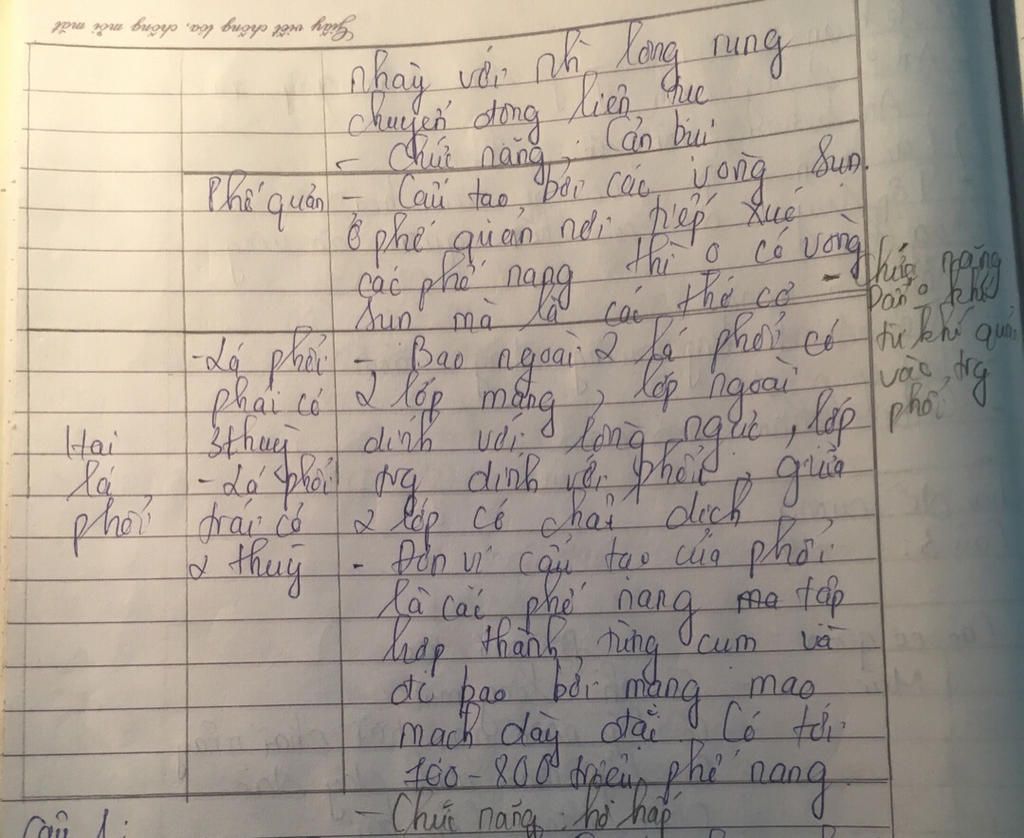 Giấy viết chống lóa, chống mỏi mắt
nhày với nhì lông rung
chuyển động liên tục
- Chức năng: Cản bụi
Phế quản
- Cấu tạo bởi các vòng sụn.
Ở phế quản nơi tiếp xúc
các phế nang thì o có vòng
sụn mà là các thớ cơ -
chức năng
Dẫn o khí
từ khí quản
vào trg
phổi
Hai
lá
phổi
- Lá phổi
phải có
3 thuỳ
- Lá phổi
trái có
2 thuỳ
- Bao ngoài 2 lá phổi có
2 lớp màng, lớp ngoài
dính với lồng ngực, lớp
trg dính với phổi, giữa
2 lớp có chất dịch
- Đơn vị cấu tạo của phổi
là các phế nang ma tập
hợp thành từng cụm và
đc bao bởi mạng mao
mạch dày đặc. Có tới
700-800 triệu phế nang
- Chức năng: hô hấp
Câu 1: